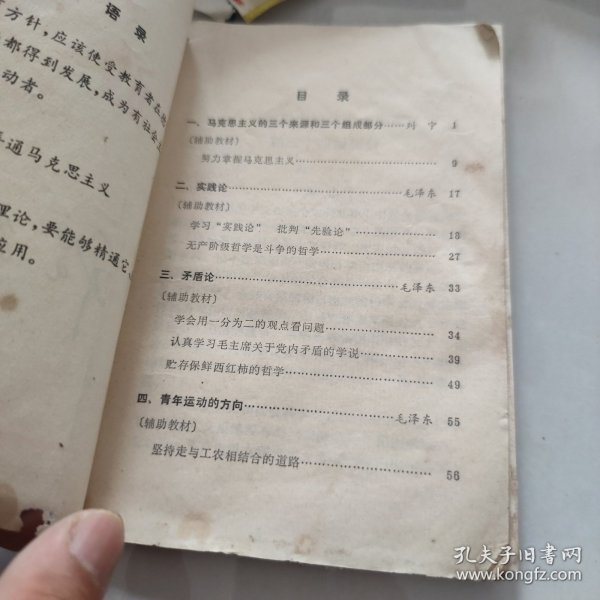 语 录
方针，应该使受教育者在
都得到发展，成为有社会
动者。
通马克思主义
理论，要能够精通它、
应用。
目 录
一、马克思主义的三个来源和三个组成部分……列 宁 1
〔辅助教材〕
努力掌握马克思主义…………………………… 9
二、实践论……………………………………毛泽东 17
〔辅助教材〕
学习“实践论” 批判“先验论”…………………… 18
无产阶级哲学是斗争的哲学…………………… 27
三、矛盾论……………………………………毛泽东 33
〔辅助教材〕
学会用一分为二的观点看问题………………… 34
认真学习毛主席关于党内矛盾的学说………… 39
贮存保鲜西红柿的哲学………………………… 49
四、青年运动的方向…………………………毛泽东 55
〔辅助教材〕
坚持走与工农相结合的道路…………………… 56
孔夫子旧书网
www.kongfz.com